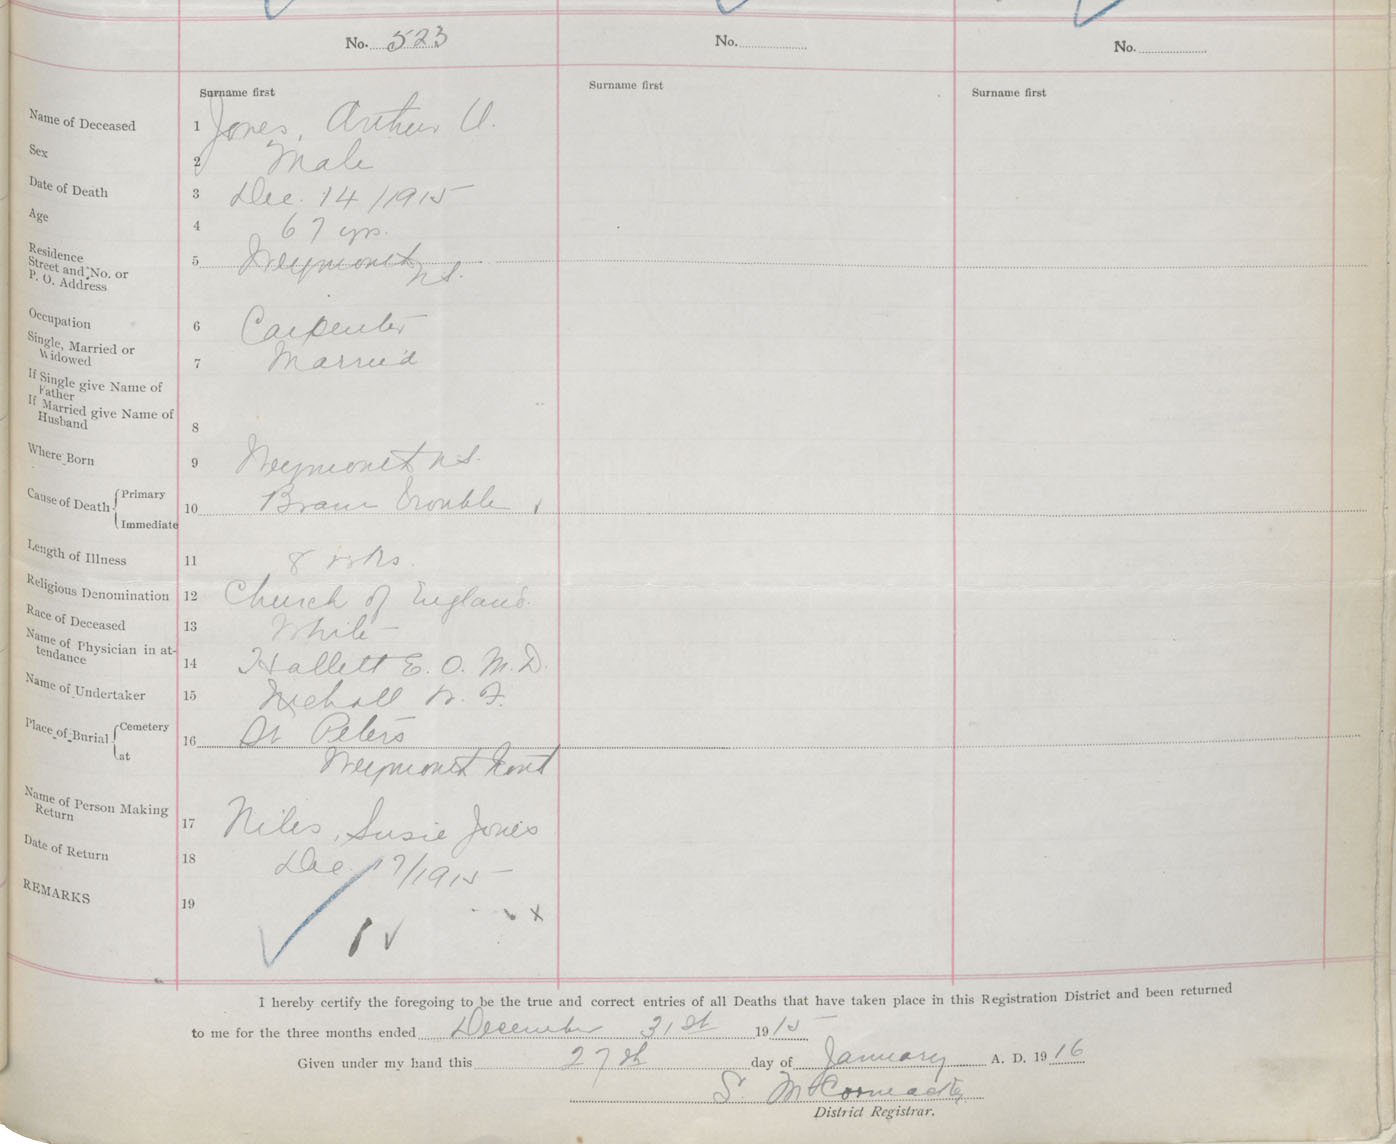 No. 523
No.
No.
Surname first
Surname first
Surname first
Name of Deceased 1 Jones, Arthur U.
Sex 2 Male
Date of Death 3 Dec. 14/1915
Age 4 67 yrs.
Residence
Street and No. or
P. O. Address
5 Weymouth
N.S.
Occupation 6 Carpenter
Single, Married or
Widowed
7 Married
If Single give Name of
Father
If Married give Name of
Husband
8
Where Born 9 Weymouth N.S.
Cause of Death { Primary
Immediate
10 Brain Trouble
Length of Illness 11 8 wks.
Religious Denomination 12 Church of England.
Race of Deceased 13 White
Name of Physician in at-
tendance
14 Hallett E. O. M.D.
Name of Undertaker 15 Nichall F.
Place of Burial { Cemetery
at
16 St Peters
Weymouth
Name of Person Making
Return
17 Niles, Susie Jones
Date of Return 18 Dec 17/1915
REMARKS 19
I hereby certify the foregoing to be the true and correct entries of all Deaths that have taken place in this Registration District and been returned
to me for the three months ended December 31st 1915
Given under my hand this 27th day of January A. D. 1916
S.
District Registrar.